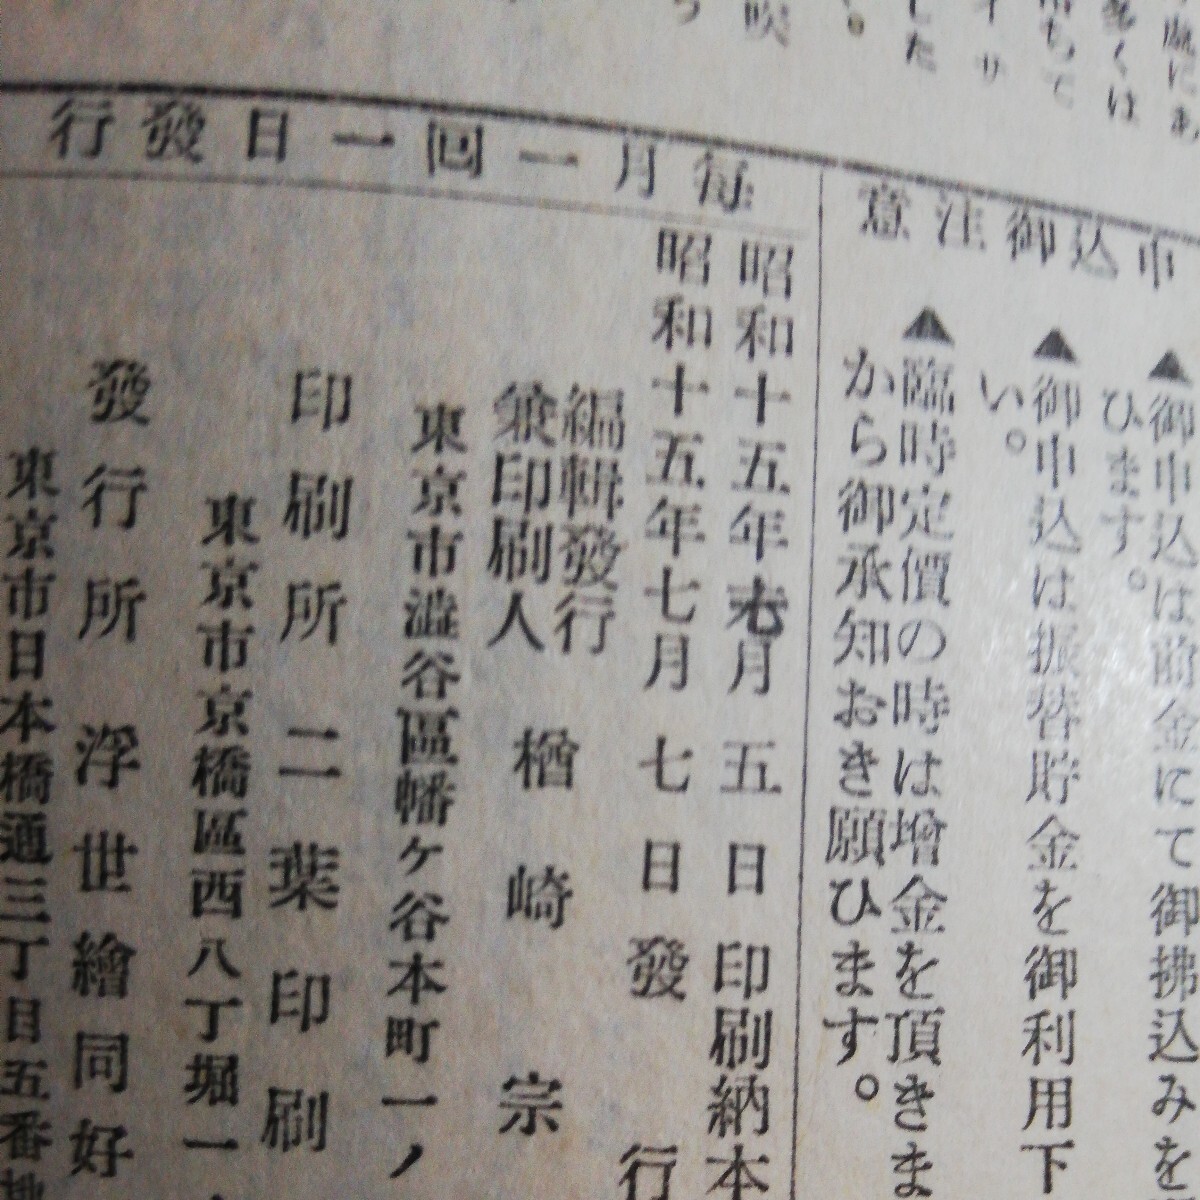 處にあ
多くは
ちて
イサ
した
い。
咲
つ
申込御注意
▲御申込は前金にて御拂込みを
ひます。
▲御申込は振替貯金を御利用下
い。
▲臨時定價の時は增金を頂きま
から御承知おき願ひます。
每月一回一日發行
昭和十五年 月五日印刷納本
昭和十五年七月七日發行
編輯發行
兼印刷人 楢崎宗
東京市澁谷區幡ケ谷本町一ノ
印刷所 二葉印刷
東京市京橋區西八丁堀一
發行所 浮世繪同好
東京市日本橋通三丁目五番地